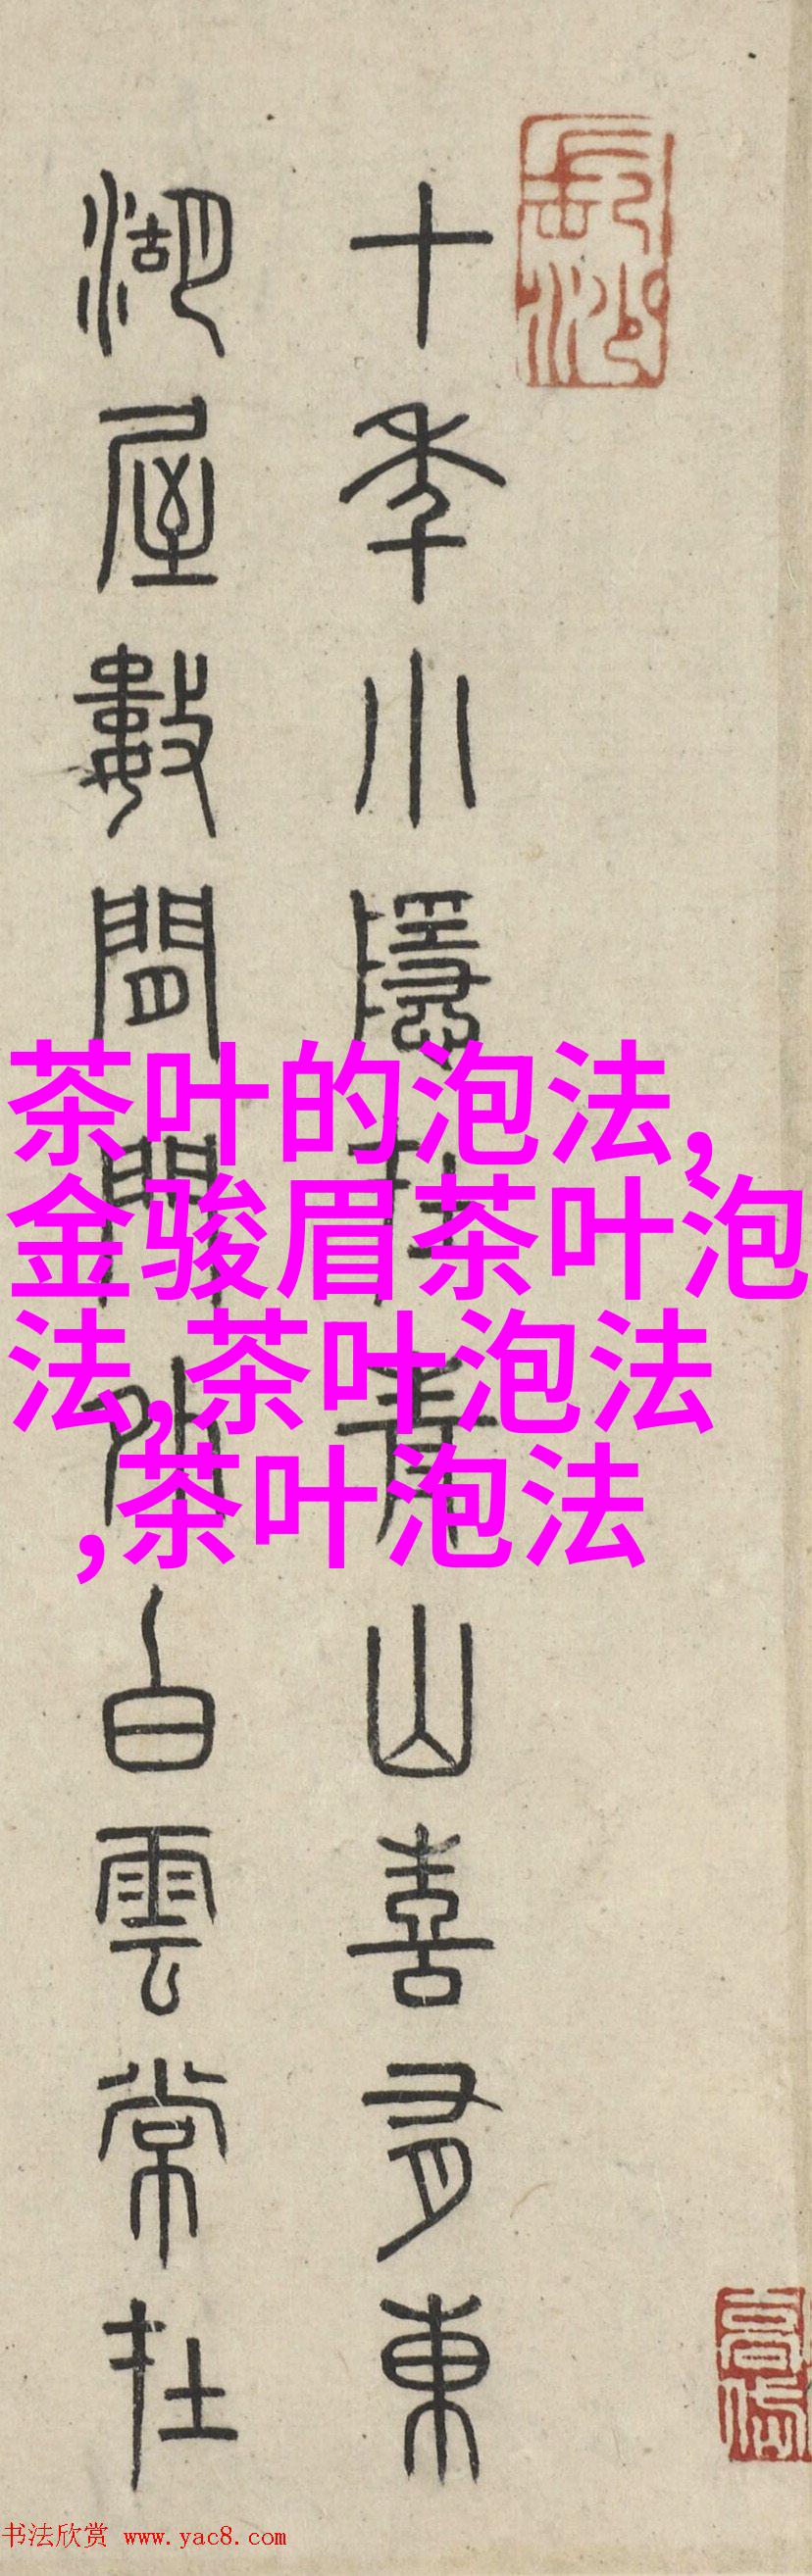 十年小隱在青山喜有東
湖屋數間門外白雲常在
茶叶的泡法,
金骏眉茶叶泡
法,茶叶泡法
,茶叶泡法
书法欣赏 www.yac8.com